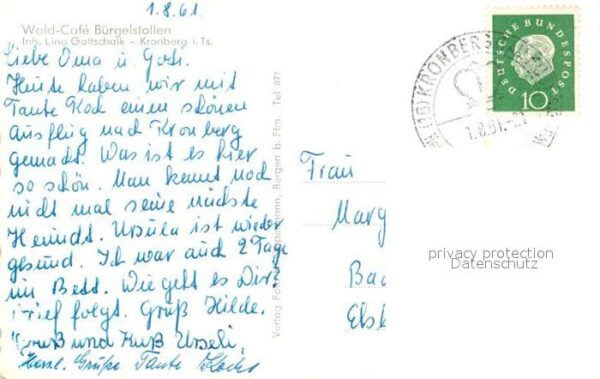 1.8.61
Wald-Café Bürgelstollen
Inh. Lina Gottschalk - Kronberg i. Ts.
Liebe Oma u. Goti.
Heute haben wir mit
Tante Koch einen schönen
Ausflug nach Kronberg
gemacht. Was ist es hier
so schön. Man kennt noch
nicht mal seine nächste
Heimat. Ursula ist wieder
gesund. Ich war auch 2 Tage
im Bett. Wie geht es Dir?
Brief folgt. Gruß Hilde.
Gruß und Kuß Urseli,
Herzl. Grüße Tante
Verlag Bergen b. Ffm. Tel. 871
Frau
Marg
Bad
Elsb
(16) KRONBERG
1.8.61
DEUTSCHE BUNDESPOST
10
privacy protection
Datenschutz